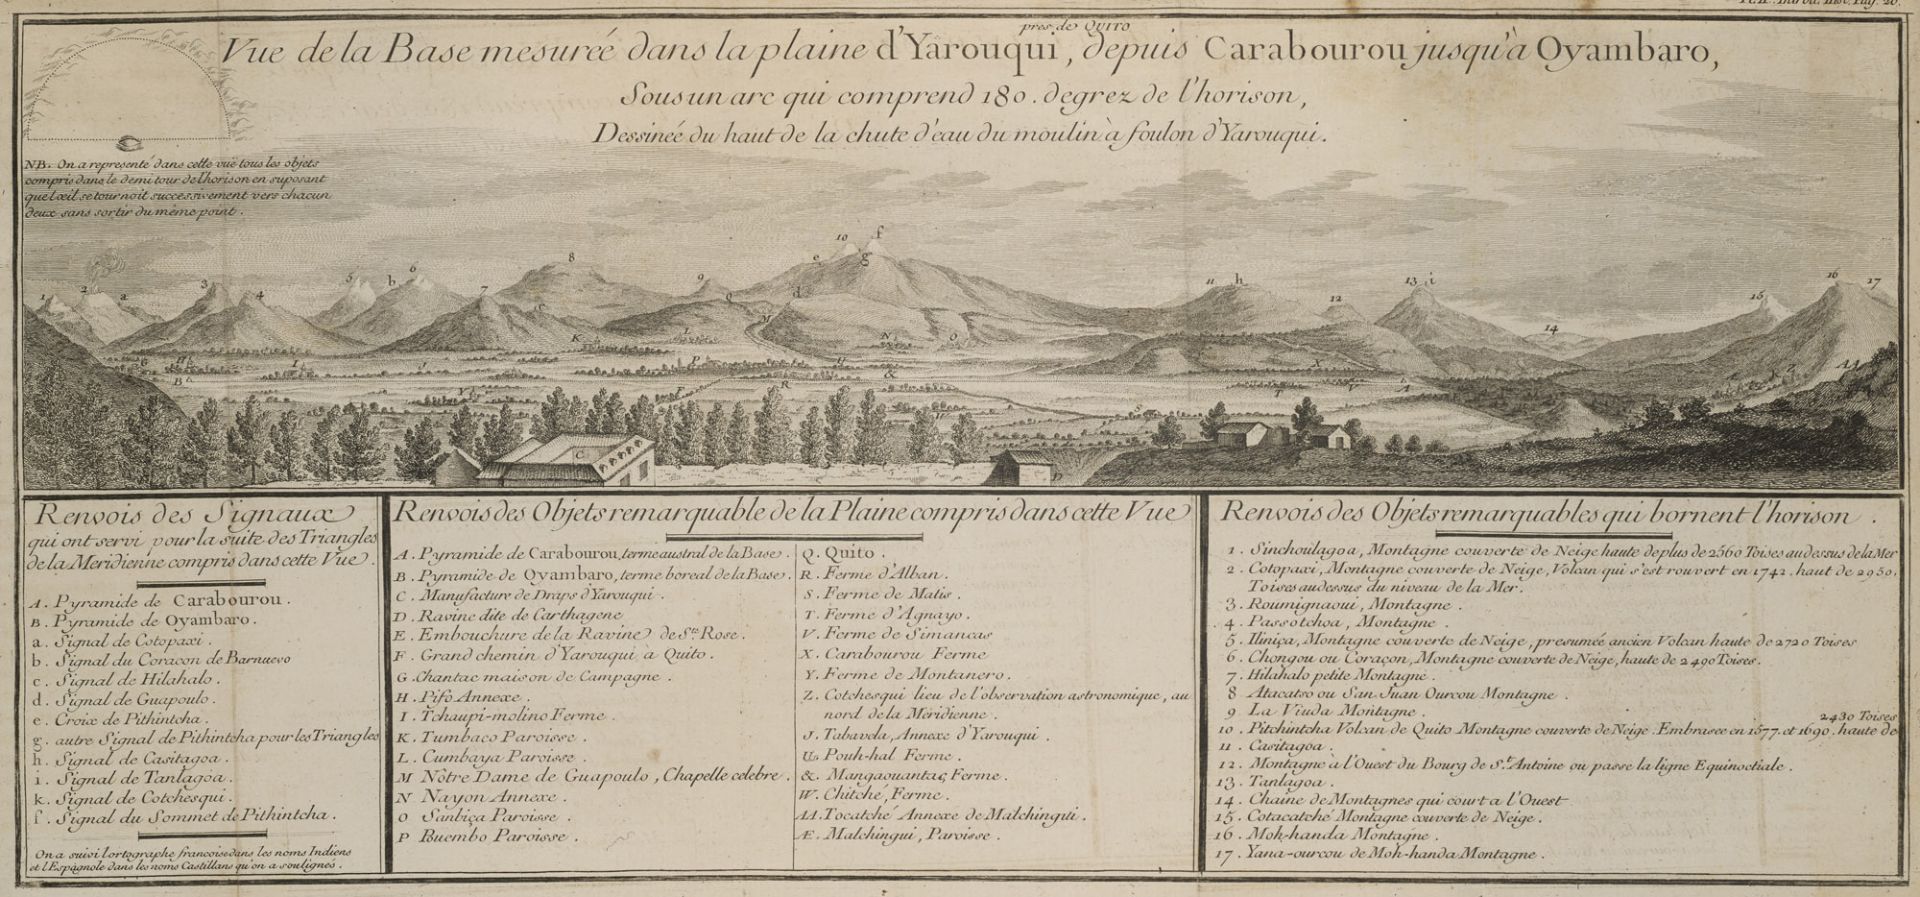 près de QUITO
Vue de la Base mesurée dans la plaine d'Yarouqui, depuis Carabourou jusqu'à Oyambaro,
Sous un arc qui comprend 180. degrez de l'horison,
Dessinée du haut de la chute d'eau du moulin à foulon d'Yarouqui.
NB. On a representé dans cette vuë tous les objets
compris dans le demi tour de l'horison en suposant
que l'œil se tournoit successivement vers chacun
deux sans sortir du même point.
Renvois des Signaux
qui ont servi pour la suite des Triangles
de la Meridienne compris dans cette Vue.
A. Pyramide de Carabourou.
B. Pyramide de Oyambaro.
a. Signal de Cotopaxi.
b. Signal du Coracon de Barnuevo
c. Signal de Hilahalo.
d. Signal de Guapoulo.
e. Croix de Pithintcha.
g. autre Signal de Pithintcha pour les Triangles
h. Signal de Casitagoa.
i. Signal de Tanlagoa.
k. Signal de Cotchesqui.
f. Signal du Sommet de Pithintcha.
On a suivi l'ortographe francoise dans les noms Indiens
et l'Espagnole dans les noms Castillans qu'on a soulignés.
Renvois des Objets remarquable de la Plaine compris dans cette Vue
A. Pyramide de Carabourou, terme austral de la Base.
B. Pyramide de Oyambaro, terme boreal de la Base.
C. Manufacture de Draps d'Yarouqui.
D. Ravine dite de Carthagene
E. Embouchure de la Ravine de Ste. Rose.
F. Grand chemin d'Yarouqui à Quito.
G. Chantac maison de Campagne.
H. Pifo Annexe.
I. Tchaupi-molino Ferme.
K. Tumbaco Paroisse.
L. Cumbaya Paroisse.
M Nôtre Dame de Guapoulo, Chapelle celebre.
N Nayon Annexe.
O Sanbiça Paroisse.
P Puembo Paroisse.
Q. Quito.
R. Ferme d'Alban.
S. Ferme de Malis.
T. Ferme d'Agnayo.
V. Ferme de Simancas
X. Carabourou Ferme
Y. Ferme de Montanero.
Z. Cotchesqui lieu de l'observation astronomique, au
nord de la Méridienne.
J. Tabavela, Annexe d'Yarouqui.
U. Pouh-hal Ferme.
&. Mangaouantac Ferme.
W. Chitché, Ferme.
AA. Tocatché Annexe de Malchingui.
Æ. Malchingui, Paroisse.
Renvois des Objets remarquables qui bornent l'horison.
1. Sinchoulagoa, Montagne couverte de Neige haute de plus de 2560 Toises au dessus de la Mer
2. Cotopaxi, Montagne couverte de Neige, Volcan qui s'est rouvert en 1742. haut de 2950.
Toises au dessus du niveau de la Mer.
3. Roumignaoui, Montagne.
4. Passotchoa, Montagne.
5. Iliniça, Montagne couverte de Neige, presumée ancien Volcan haute de 2720 Toises
6. Chongou ou Coraçon, Montagne couverte de Neige, haute de 2490 Toises.
7. Hilahalo petite Montagne.
8 Atacatso ou San Juan Ourcou Montagne.
9 La Viuda Montagne.
2430 Toises
10 Pitchintcha Volcan de Quito Montagne couverte de Neige. Embrasée en 1577. et 1690. haute de
11 Casitagoa.
12. Montagne à l'Ouest du Bourg de St. Antoine ou passe la ligne Equinoctiale.
13. Tanlagoa.
14. Chaîne de Montagnes qui court a l'Ouest
15. Cotacatché Montagne couverte de Neige.
16. Moh-handa Montagne.
17. Yana-ourcou de Moh-handa Montagne.